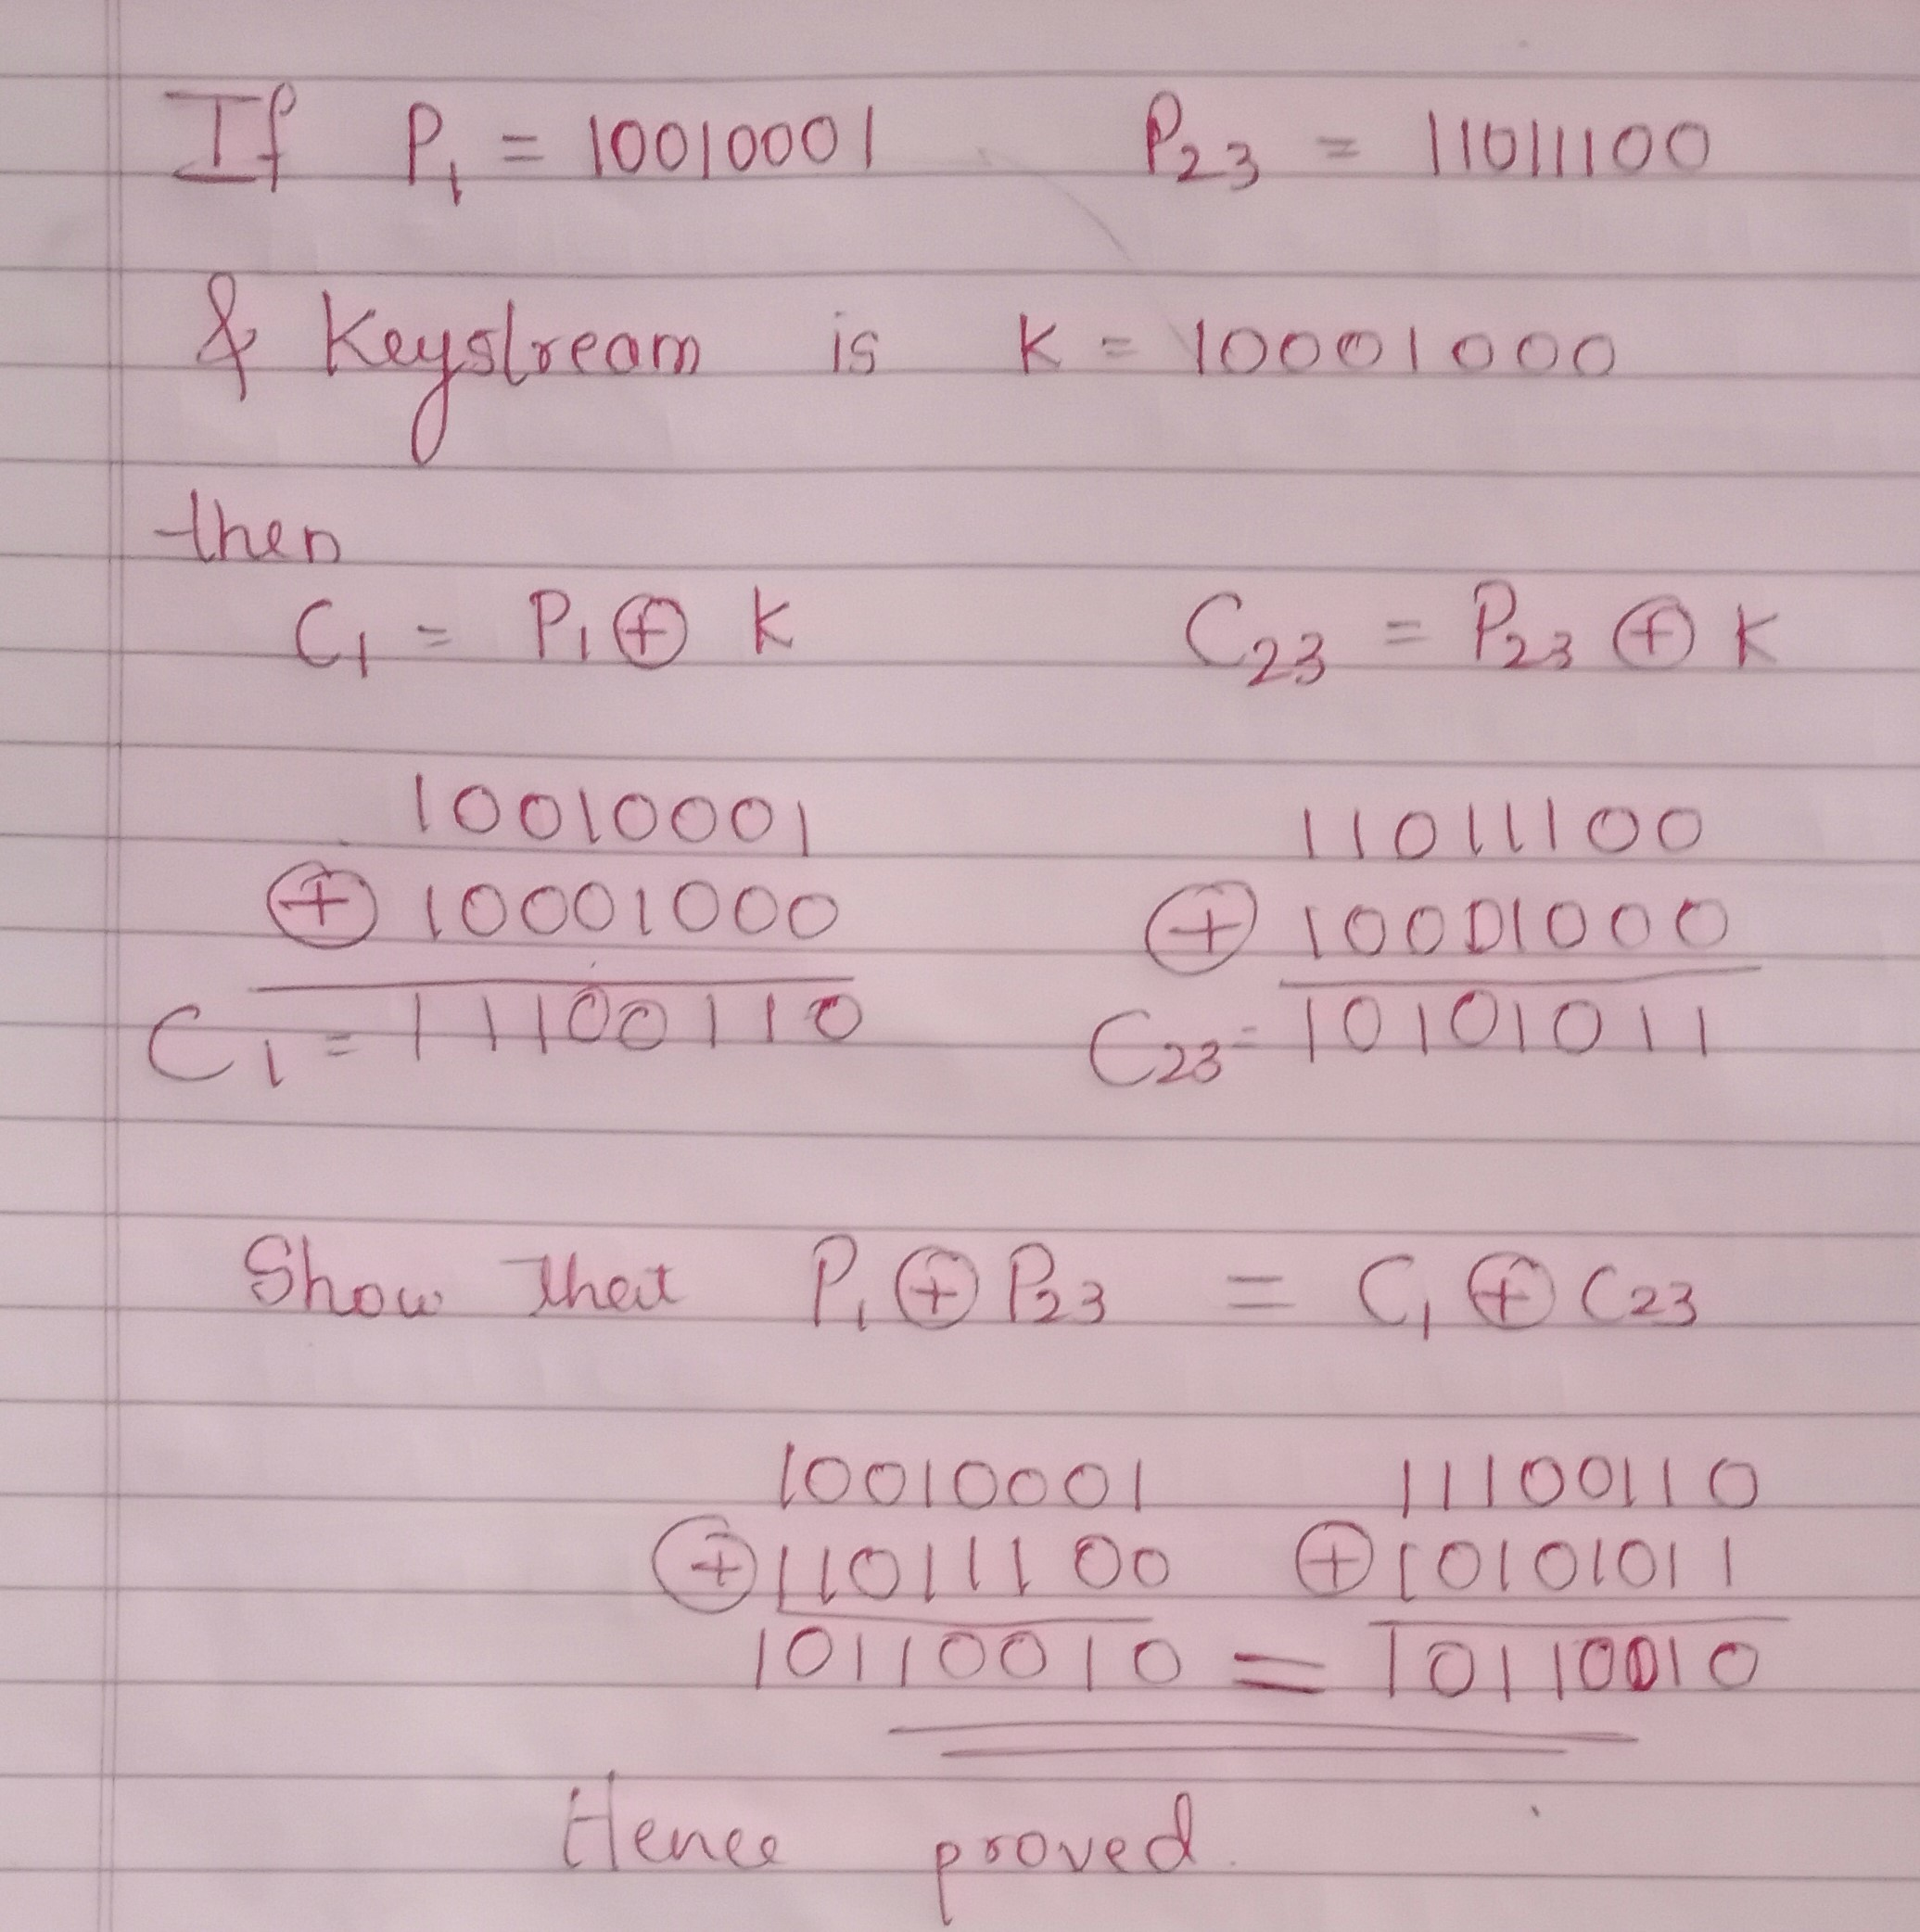 If P₁ = 10010001 P₂₃ = 11011100
& Keystream is K = 10001000
then
C₁ = P₁ ⊕ K C₂₃ = P₂₃ ⊕ K
10010001 11011100
⊕ 10001000 ⊕ 10001000
C₁ = 11100110 C₂₃ = 10101011
Show that P₁ ⊕ P₂₃ = C₁ ⊕ C₂₃
10010001 11100110
⊕ 11011100 ⊕ 10101011
10110010 = 10110010
Hence proved.